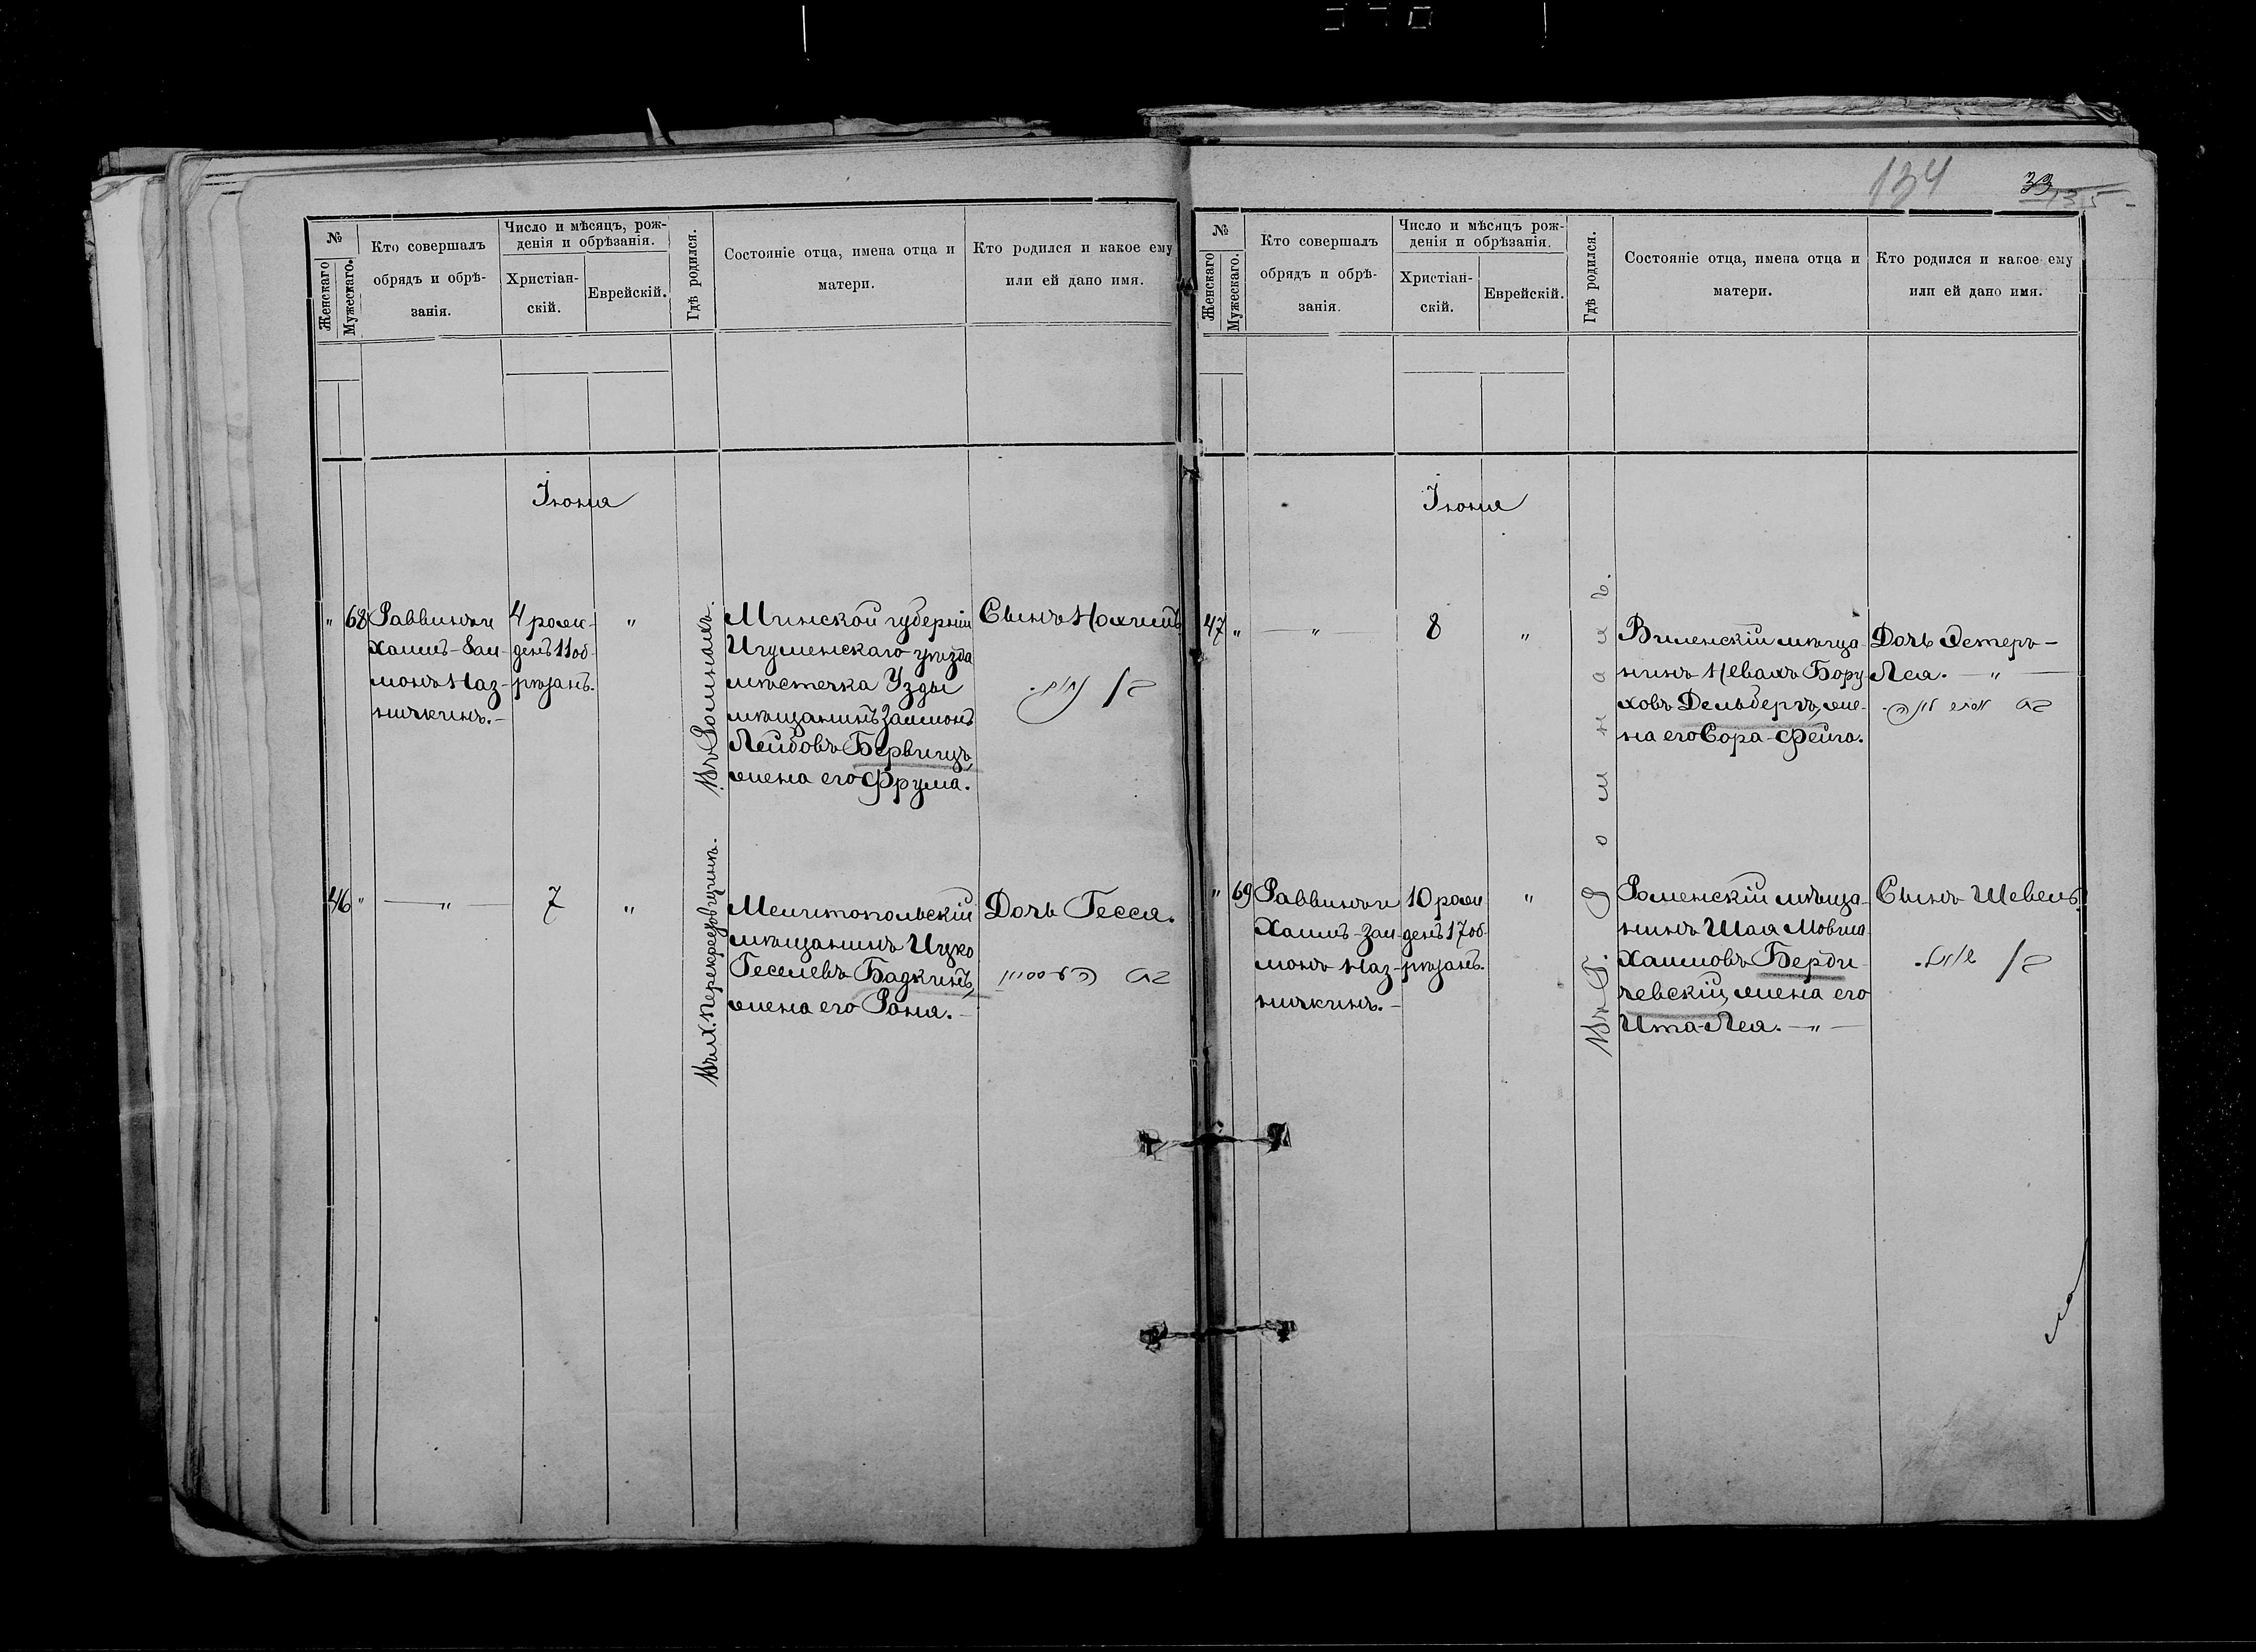 134
33
135
№
Женскаго
Мужескаго.
Кто совершалъ
обрядъ и обрѣ-
занія.
Число и мѣсяцъ, рож-
денія и обрѣзанія.
Христіан-
скій.
Еврейскій.
Гдѣ родился.
Состояніе отца, имена отца и
матери.
Кто родился и какое ему
или ей дано имя.
Іюня
" 68
Раввинъ и
Хаимъ-Зал-
монъ Наз-
ничкинъ.-
4 рож-
денъ 11 об-
рѣзанъ.
"
Въ Ромнахъ.
Минской губерніи
Игуменскаго уѣзда
мѣстечка Узды
мѣщанинъ Залмонъ
Лейбовъ Бервицъ,
жена его Фрума.
Сынъ Нохимъ.
46 "
— " —
7
"
Въ х. Перекрестовщинѣ.
Мелитопольскій
мѣщанинъ Ицко
Геселевъ Бадкинъ,
жена его Роня.-
Дочь Гесся.
№
Женскаго
Мужескаго.
Кто совершалъ
обрядъ и обрѣ-
занія.
Число и мѣсяцъ рож-
денія и обрѣзанія.
Христіан-
скій.
Еврейскій.
Гдѣ родился.
Состояніе отца, имена отца и
матери.
Кто родился и какое ему
или ей дано имя.
Іюня
47 "
— " —
8
"
Въ г. Ромнахъ.
Виленскій мѣща-
нинъ Невахъ Бору-
ховъ Дельбергъ, же-
на его Сора-Фейга.
Дочь Эстеръ-
Лея. — " —
" 69
Раввинъ и
Хаимъ-Зал-
монъ Наз-
ничкинъ.-
10 рож
денъ 17 об-
рѣзанъ.
"
Роменскій мѣща-
нинъ Шая Мовша
Хаимовъ Берди-
чевскій, жена его
Ита-Лея. — " —
Сынъ Шевель.